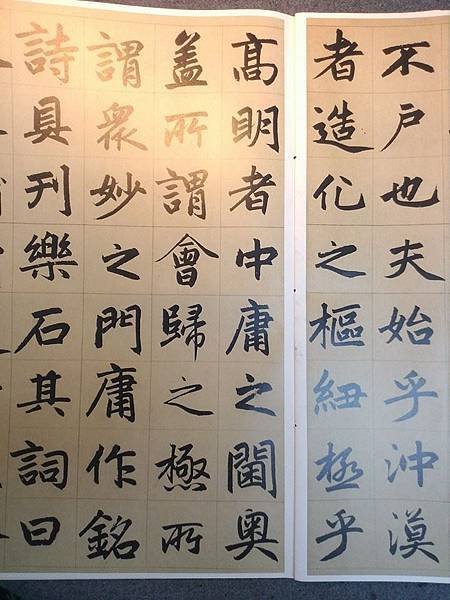 不戶也夫始乎沖漠
者造化之樞紐極乎
髙明者中庸之閫奧
盖所謂會歸之極所
謂衆妙之門庸作銘
詩具刊樂石其詞曰